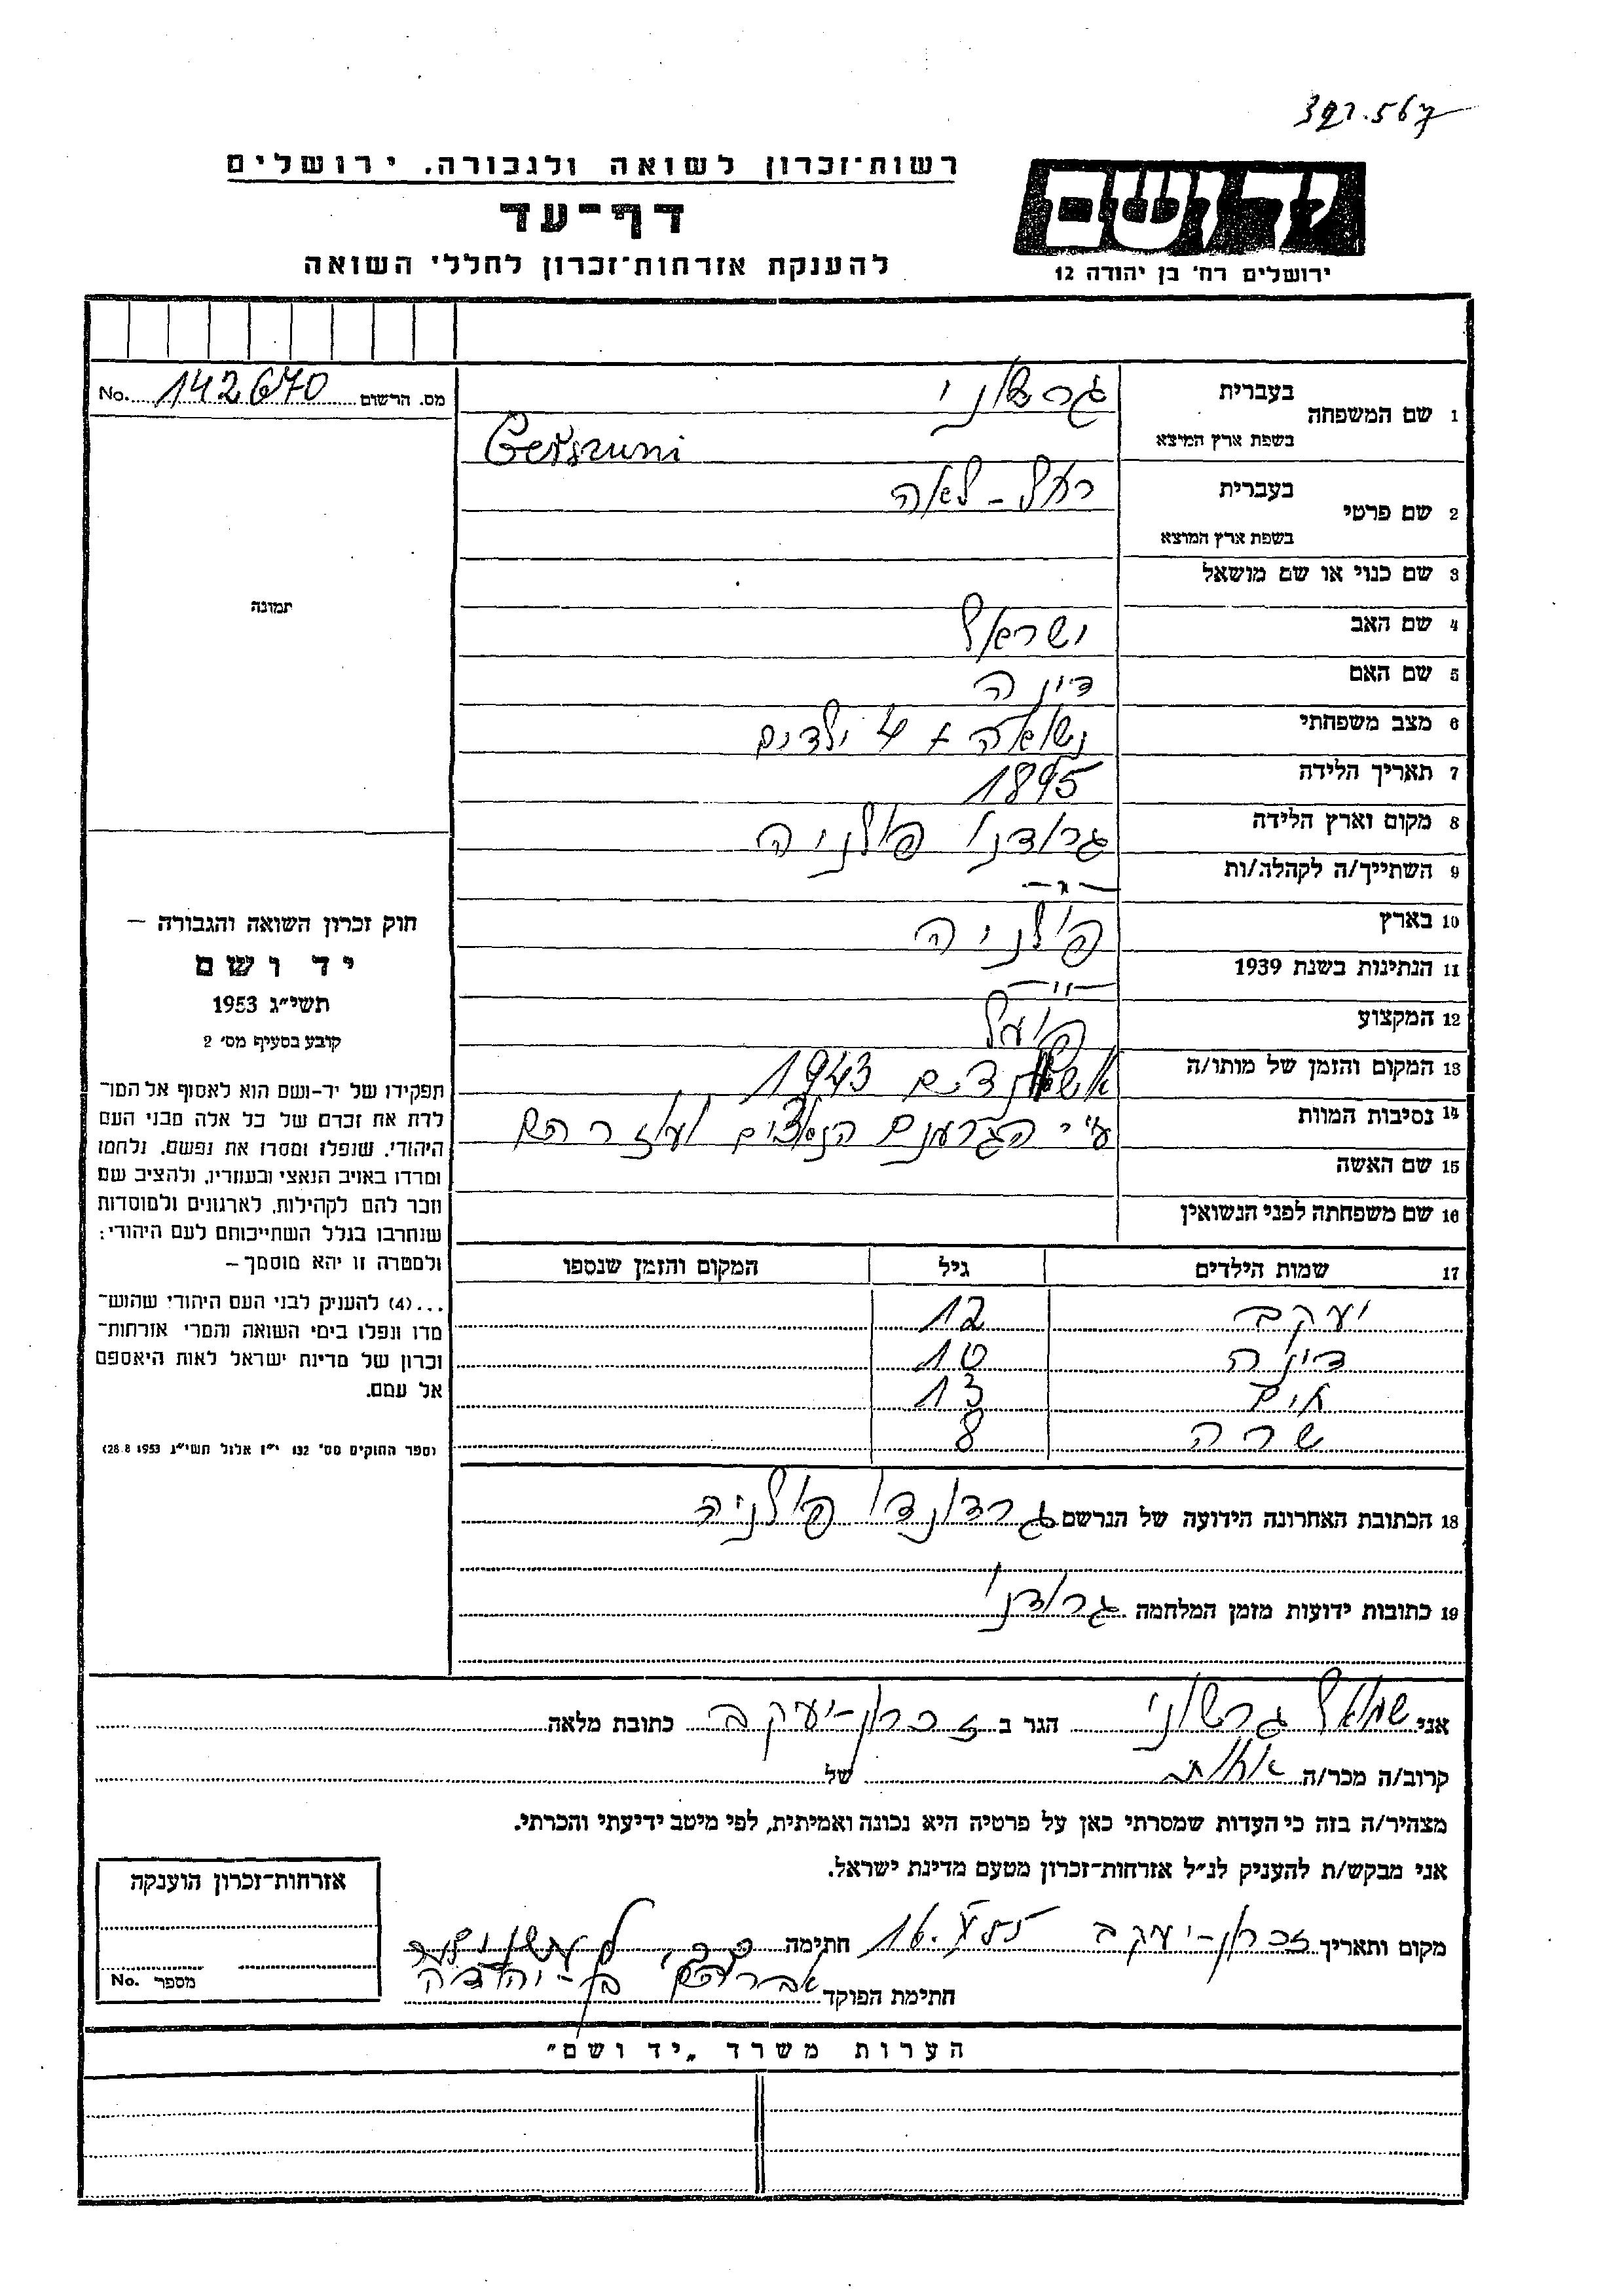 392.567
רשות־זכרון לשואה ולגבורה. ירושלים
ידושם
דף־עד
ירושלים רח' בן יהודה 12
להענקת אזרחות־זכרון לחללי השואה
מס. הרשום 142670 No.
1 שם המשפחה בעברית גרשוני
בשפת ארץ המוצא Gerszuni
2 שם פרטי בעברית רחל - לאה
בשפת ארץ המוצא
3 שם כנוי או שם מושאל
4 שם האב ישראל
5 שם האם דינה
6 מצב משפחתי נשואה + 4 ילדים
7 תאריך הלידה 1895
8 מקום וארץ הלידה גרודנו פולניה
9 השתייך/ה לקהלה/ות -"-
10 בארץ פולניה
11 הנתינות בשנת 1939 -"-
12 המקצוע פועל
13 המקום והזמן של מותו/ה 1943
14 נסיבות המוות ע"י הגרמנים הנאצים
15 שם האשה
16 שם משפחתה לפני הנשואין
17 שמות הילדים גיל המקום והזמן שנספו
יעקב 12
דינה 10
חיים 13
שרה 8
18 הכתובת האחרונה הידועה של הנרשם פולניה
19 כתובות ידועות מזמן המלחמה גרודנו
תמונה
חוק זכרון השואה והגבורה –
יד ושם
תשי״ג 1953
קובע בסעיף מס׳ 2
תפקידו של יד-ושם הוא לאסוף אל המו־
לדת את זכרם של כל אלה מבני העם
היהודי, שנפלו ומסרו את נפשם, נלחמו
ומרדו באויב הנאצי ובעוזריו, ולהציב שם
וזכר להם לקהילות, לארגונים ולמוסדות
שנחרבו בגלל השתייכותם לעם היהודי;
ולמטרה זו יהא מוסמך –
...(4) להעניק לבני העם היהודי שהוש־
מדו ונפלו בימי השואה והמרי אזרחות־
זכרון של מדינת ישראל לאות היאספם
אל עמם.
(ספר החוקים מס׳ 132 י״ז אלול תשי״ג 28.8.1953)
אני שמואל גרשוני הגר ב זכרון-יעקב כתובת מלאה
קרוב/ה מכר/ה של
מצהיר/ה בזה כי העדות שמסרתי כאן על פרטיה היא נכונה ואמיתית, לפי מיטב ידיעתי והכרתי.
אני מבקש/ת להעניק לנ״ל אזרחות־זכרון מטעם מדינת ישראל.
מקום ותאריך זכרון-יעקב 16. חתימה
חתימת הפוקד אברהם בן-יהודה
אזרחות־זכרון הוענקה
מספר No.
הערות משרד „יד ושם״